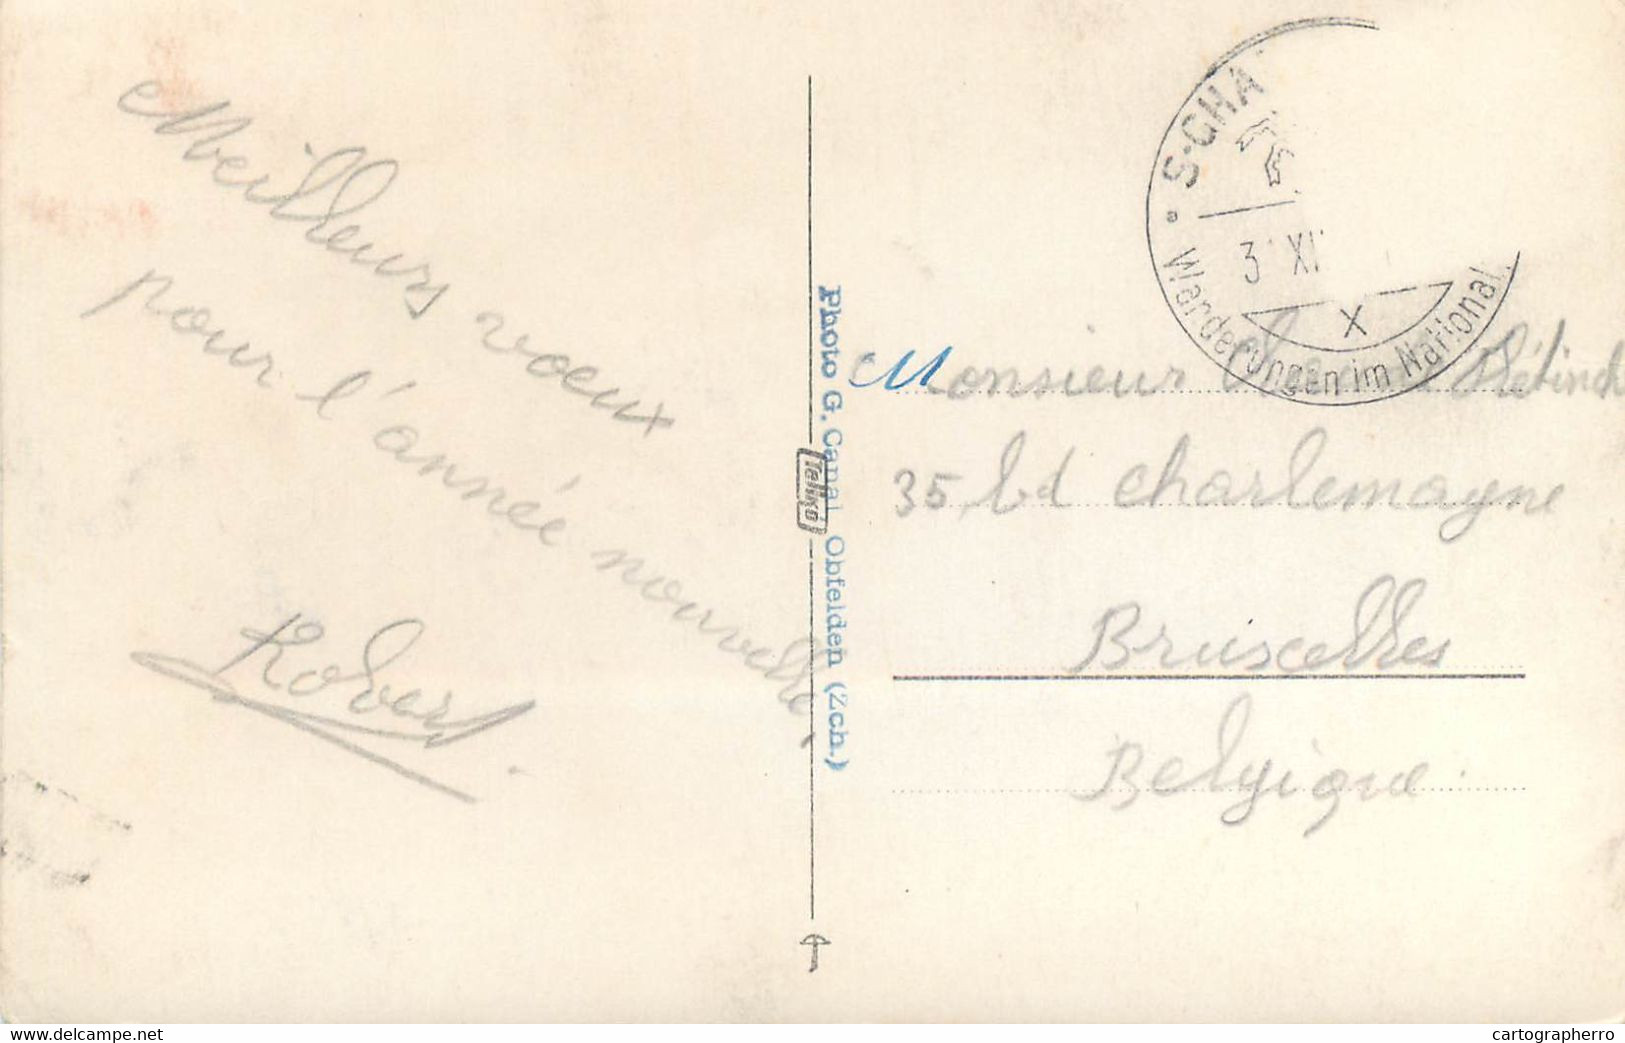 Meilleurs voeux
pour l'année nouvelle.
Robert.
Photo G. Canal, Obfelden (Zch.)
Tellko
S-CHA
3 XI
X
Wanderungen im National
Monsieur
35 bd Charlemagne
Bruxelles
Belgique.
www.delcampe.net
cartographerro